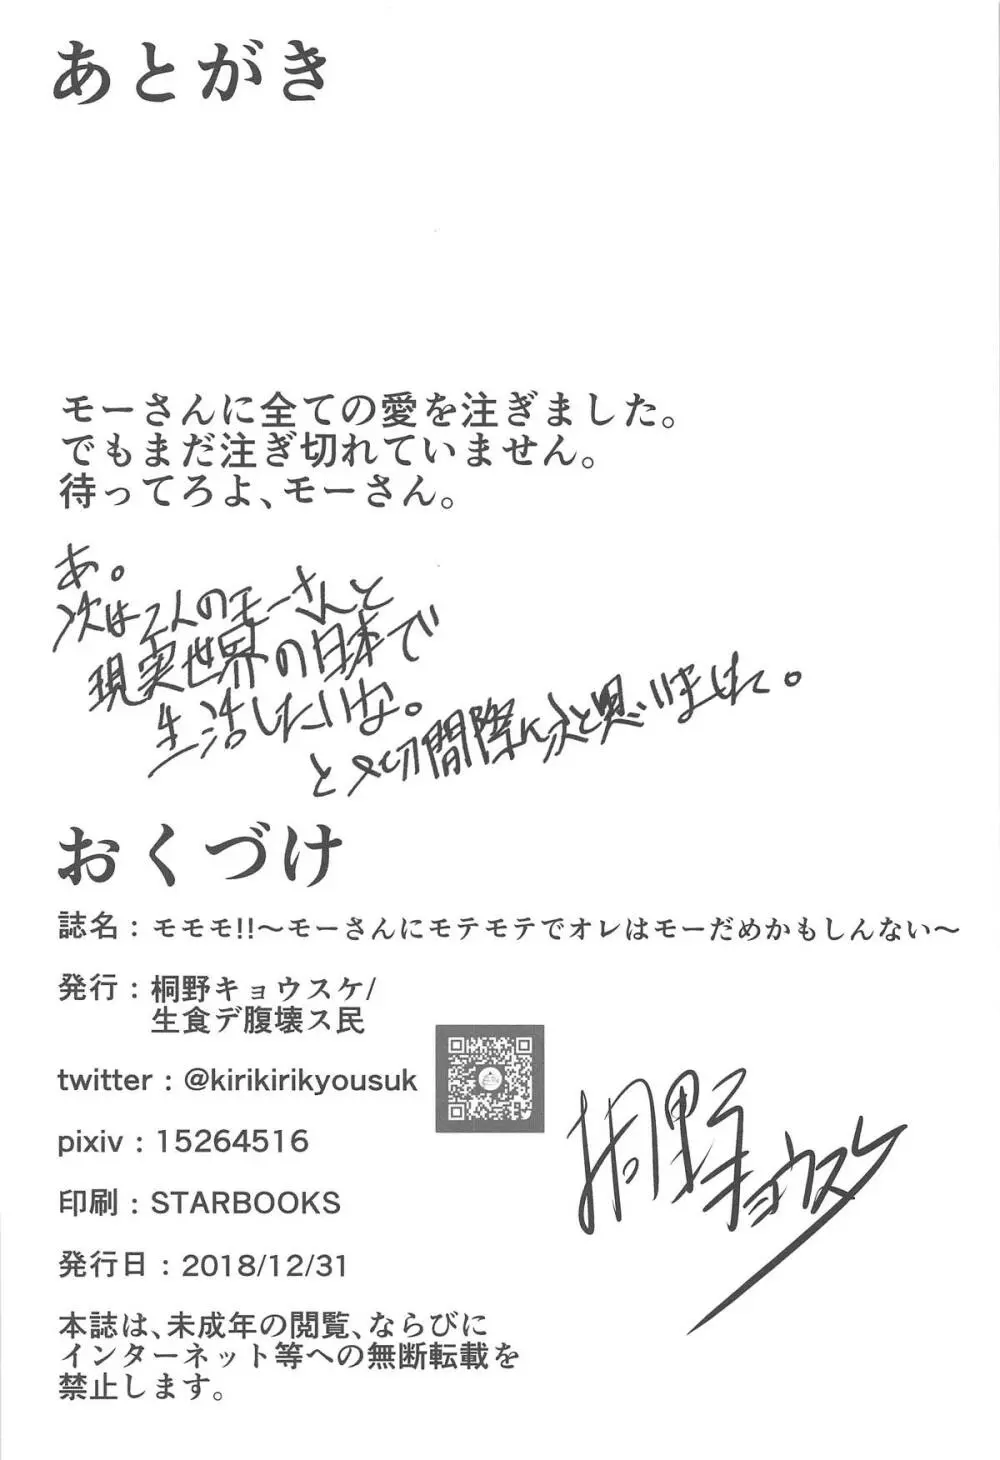 あとがき
モーさんに全ての愛を注ぎました。
でもまだ注ぎ切れていません。
待ってろよ、モーさん。
あ。
次は2人のモーさんと
現実世界の日本で
生活したいな。
と〆切間際に
と思いました。
おくづけ
誌名：モモモ!!〜モーさんにモテモテでオレはモーだめかもしんない〜
発行：桐野キョウスケ/
生食デ腹壊ス民
twitter：@kirikirikyousuk
pixiv：15264516
印刷：STARBOOKS
発行日：2018/12/31
桐野キョウスケ
本誌は、未成年の閲覧、ならびに
インターネット等への無断転載を
禁止します。